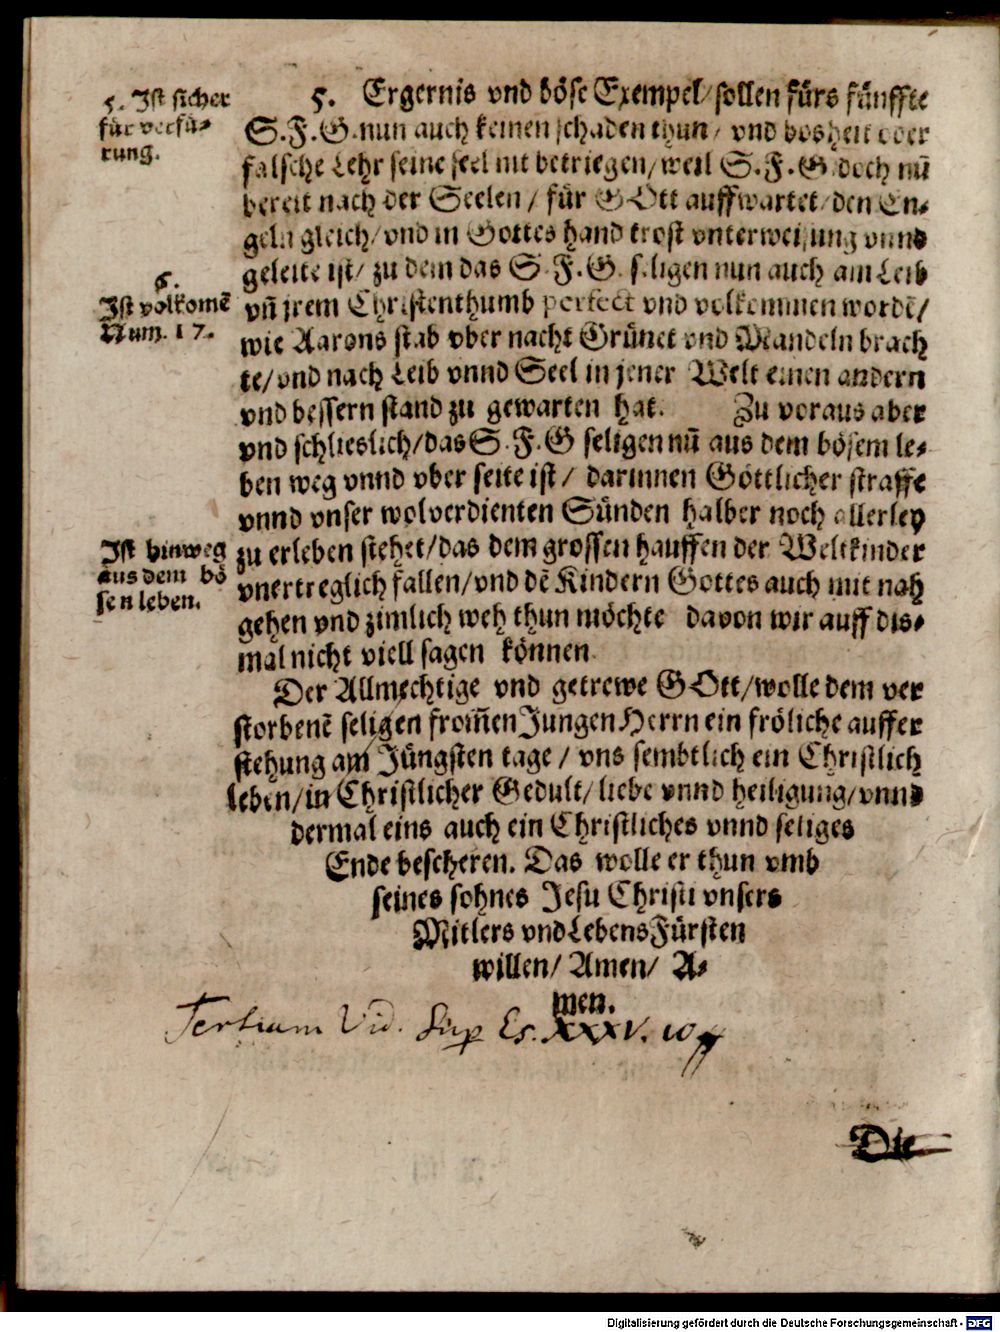 5. Ist sicher
für verfü-
rung.
5. Ergernis vnd böse Exempel/sollen fürs fünffte
S.F.G.nun auch keinen schaden thun/ vnd bosheit oder
falsche Lehr seine seel nit betriegen/weil S.F.G.doch nū
bereit nach der Seelen/ für GOtt auffwartet/den En-
geln gleich/vnd in Gottes hand trost vnterweisung vnnd
geleite ist/ zu dem das S.F.G. seligen nun auch am Leib
6.
Ist volkomē
Num. 17.
vñ jrem Christenthumb perfect vnd volkommen wordē/
wie Aarons stab vber nacht Grünet vnd Mandeln brach
te/vnd nach Leib vnnd Seel in jener Welt einen andern
vnd bessern stand zu gewarten hat. Zu voraus aber
vnd schlieslich/das S.F.G seligen nū aus dem bösem le-
ben weg vnnd vber seite ist/ darinnen Göttlicher straffe
vnnd vnser wolverdienten Sünden halber noch allerley
Ist hinweg
aus dem bö
sen leben.
zu erleben stehet/das dem grossen hauffen der Weltkinder
vnertreglich fallen/vnd dē Kindern Gottes auch mit nah
gehen vnd zimlich weh thun möchte davon wir auff dis-
mal nicht viell sagen können.
Der Allmechtige vnd getrewe GOtt/wolle dem ver
storbenē seligen from̃en Jungen Herrn ein fröliche auffer
stehung am Jüngsten tage/ vns sembtlich ein Christlich
leben/in Christlicher Gedult/liebe vnnd heiligung/vnnd
dermal eins auch ein Christliches vnnd seliges
Ende bescheren. Das wolle er thun vmb
seines sohnes Jesu Christi vnsers
Mitlers vnd LebensFürsten
willen/ Amen/ A-
men.
Tertium Vid. Sup Es. XXXV. 10
Die
Digitalisierung gefördert durch die Deutsche Forschungsgemeinschaft - DFG